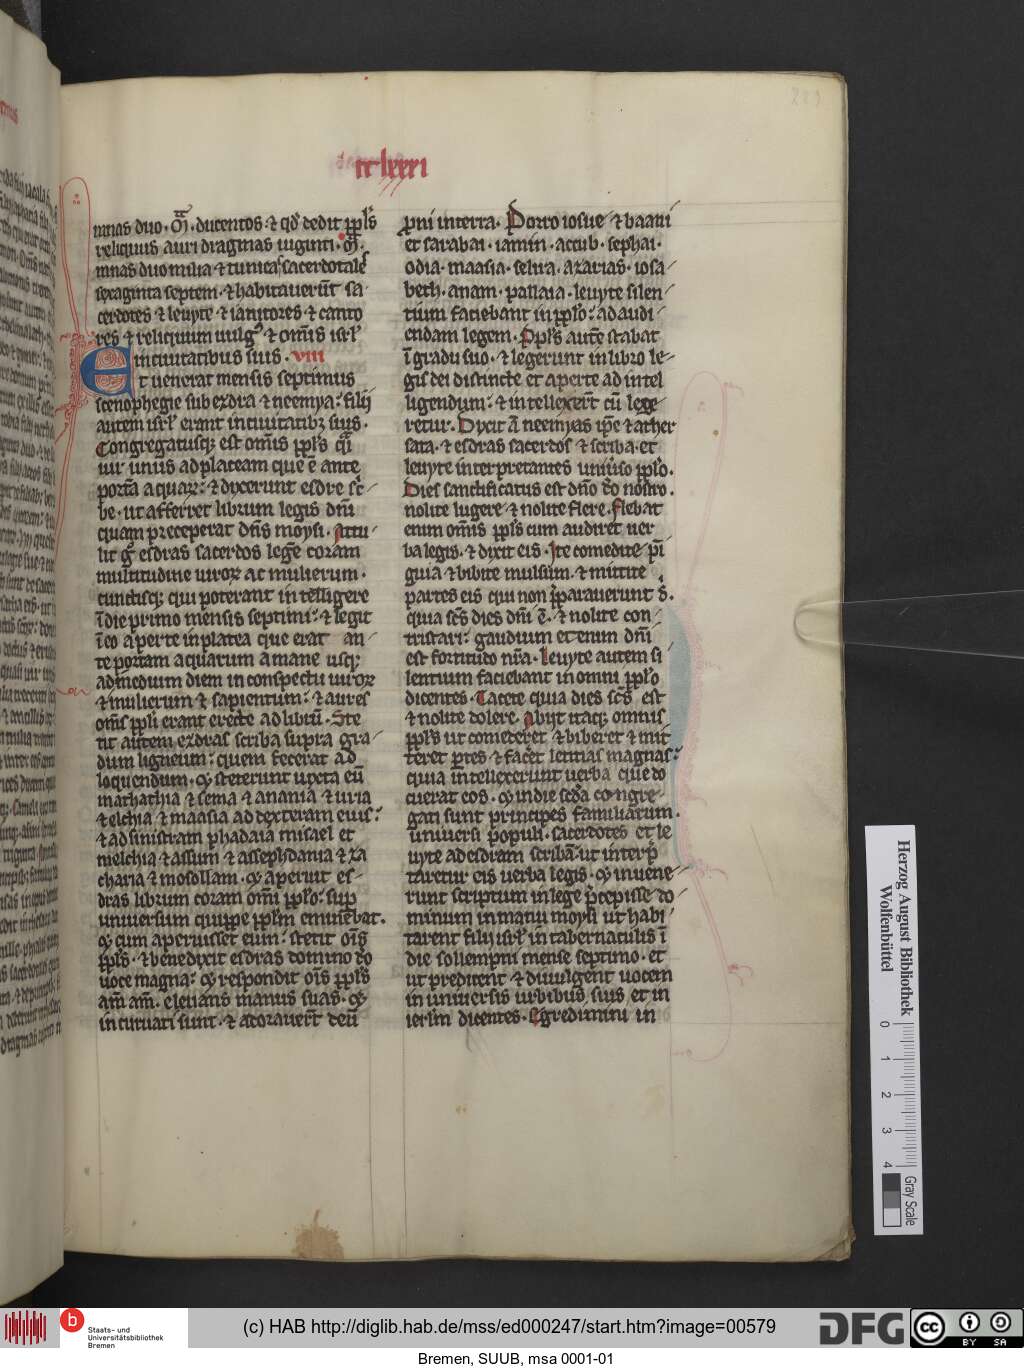 cclxxxi
mnas duo · M̅ · ducentos · ⁊ qd̓ dedit ppl̓s
reliquus auri dragmas uiginti · M̅ ·
mnas duo milia ⁊ tunicas sacerdotales
sexaginta septem · ⁊ habitauerūt sa-
cerdotes ⁊ leuyte ⁊ ianitores ⁊ canto
res ⁊ reliquum uulgꝰ ⁊ om̅is isrł
in ciuitatibus suis · VIII
Et uenerat mensis septimus
scenophegie sub ezdra ⁊ neemya: filij
autem isrł erant in ciuitatibꝫ suis ·
Congregatusqꝫ est om̅is ppl̓s q̅i
uir unus ad plateam que ē ante
portā aquaꝝ: ⁊ dyxerunt esdre sc̓-
be · ut afferret librum legis dn̅i
quam preceperat dn̅s moysi · Attu-
lit g̊ esdras sacerdos legē coram
multitudine uiroꝝ ac mulierum ·
cunctisqꝫ qui poterant intelligere
ī die primo mensis septimi: ⁊ legit
ī eo aperte in platea que erat an-
te portam aquarum a mane usqꝫ
ad medium diem in conspectu uiroꝝ
⁊ mulierum ⁊ sapientum: ⁊ aures
om̅is ppl̓i erant erecte ad librū · Ste
tit autem ezdras scriba supra gra-
dum ligneum: quem fecerat ad
loquendum · ⁊ steterunt iuxta eū
mathathia ⁊ sema ⁊ anania ⁊ uria
⁊ elchia ⁊ maasia ad dexteram eius:
⁊ ad sinistram phadaia misael et
melchia ⁊ assum ⁊ assephdania ⁊ za
charia ⁊ mosollam · ⁊ aperuit es-
dras librum coram om̅i ppl̓o: sup̲
uniuersum quippe ppl̓m eminebat ·
⁊ cum aperuisset eum: stetit oı̅s
ppl̓s · ⁊ benedixit esdras domino do
uoce magna: ⁊ respondit oı̅s ppl̓s
am̅ am̅ · eleuans manus suas · ⁊
incuruati sunt · ⁊ adorauerūt deū
proni in terra · Porro iosue ⁊ baani
et sarabai · iamin · accub · sephai ·
odia · maasia · selita · azarias · iosa-
beth · anam · pallaia · leuyte silen-
tium faciebant in ppl̓o: ad audi-
endam legem · Ppl̓s autē stabat
ī gradu suo · ⁊ legerunt in libro le-
gis dei distincte et aperte ad intel
ligendum: ⁊ intellexerūt cū lege
retur · Dycit ā neemyas ip̅e ⁊ ather
sata · ⁊ esdras sacerdos ⁊ scriba · et
leuyte interpretantes uniuͥso ppl̓o ·
Dies sanctificatus est dn̅o do nostro ·
nolite lugere ⁊ nolite flere · flebat
enim om̅is ppl̓s cum audiret uer
ba legis · ⁊ dixit eis · Ite comedite pi̅
guia ⁊ bibite mulsum · ⁊ mittite
partes eis qui non p̄parauerunt s̓ ·
quia sc̅s dies dn̅i ē · ⁊ nolite con-
tristari: gaudium etenim dn̅i
est fortitudo nr̅a · Leuyte autem si
lentium faciebant in omni ppl̓o
dicentes · Tacete quia dies sc̅s est
⁊ nolite dolere · Abijt itaqꝫ omnis
ppl̓s ut comederet ⁊ biberet ⁊ mit
teret p̲tes ⁊ facēt letitias magnas:
quia intellexerunt uerba que do
cuerat eos · ⁊ in die sc̅da congre-
gati sunt principes familiarum ·
uniuersi populi · sacerdotes et le
uyte ad esdram scribā: ut interp̄
taretur eis uerba legis · ⁊ inuene-
runt scriptum in lege p̄cepisse do-
minum in manu moysi ut habi-
tarent filij isrł in tabernaculis ī
die sollempni mense septimo · et
ut predicent ⁊ diuulgent uocem
in uniuersis urbibus suis et in
ierłm dicentes · Egredimini in
Herzog August Bibliothek
Wolfenbüttel
0 1 2 3 4
Gray Scale
b
Staats- und
Universitätsbibliothek
Bremen
(c) HAB http://diglib.hab.de/mss/ed000247/start.htm?image=00579
DFG
cc BY SA
Bremen, SUUB, msa 0001-01